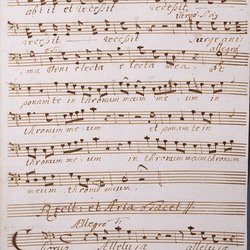 abiit et recessit
Largo Pia
recessit recessit Surge ani
allegro
ma Veni electa electa mea et
ponam te in thronum meum meum in
thronum meum et ponam te in
thronum meum in thronum
meum thronum meum.
Recit: et Aria Tacet //
Allegro
Chorus Alleluja alleluja